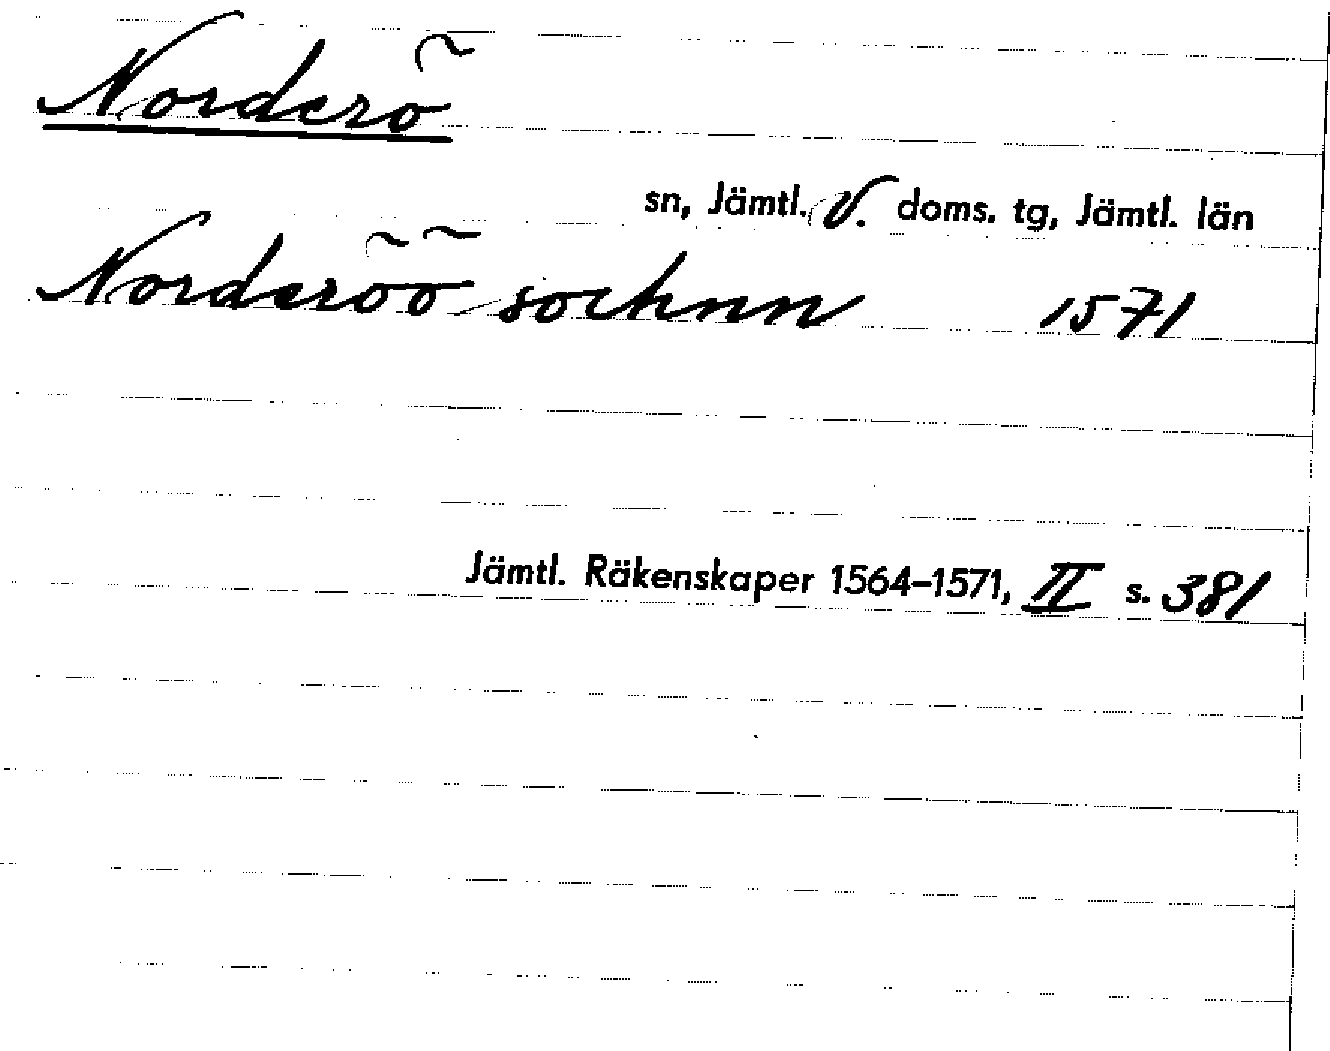 Norderö
sn, Jämtl. V. doms. tg, Jämtl. län
Norderöö sochnn 1571
Jämtl. Räkenskaper 1564-1571, II s. 381